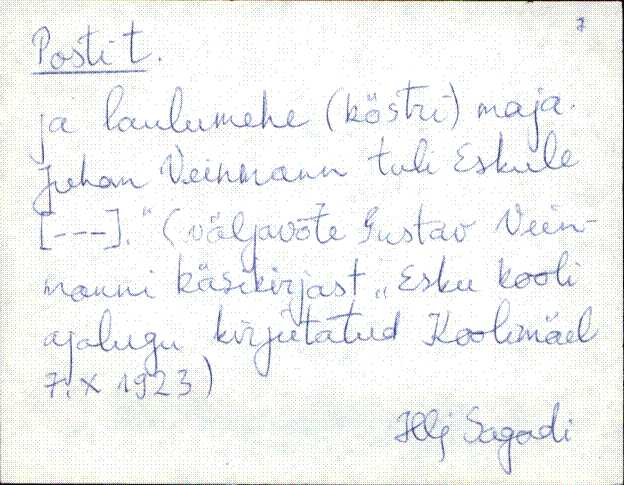 7
Posti t.
ja laulumehe (köstri) maja.
Juhan Veinmann tuli Eskule
[---]." (väljavõte Gustav Vein-
manni käsikirjast „Esku kooli
ajalugu kirjutatud Koolimäel
7. X 1923)
Sagadi